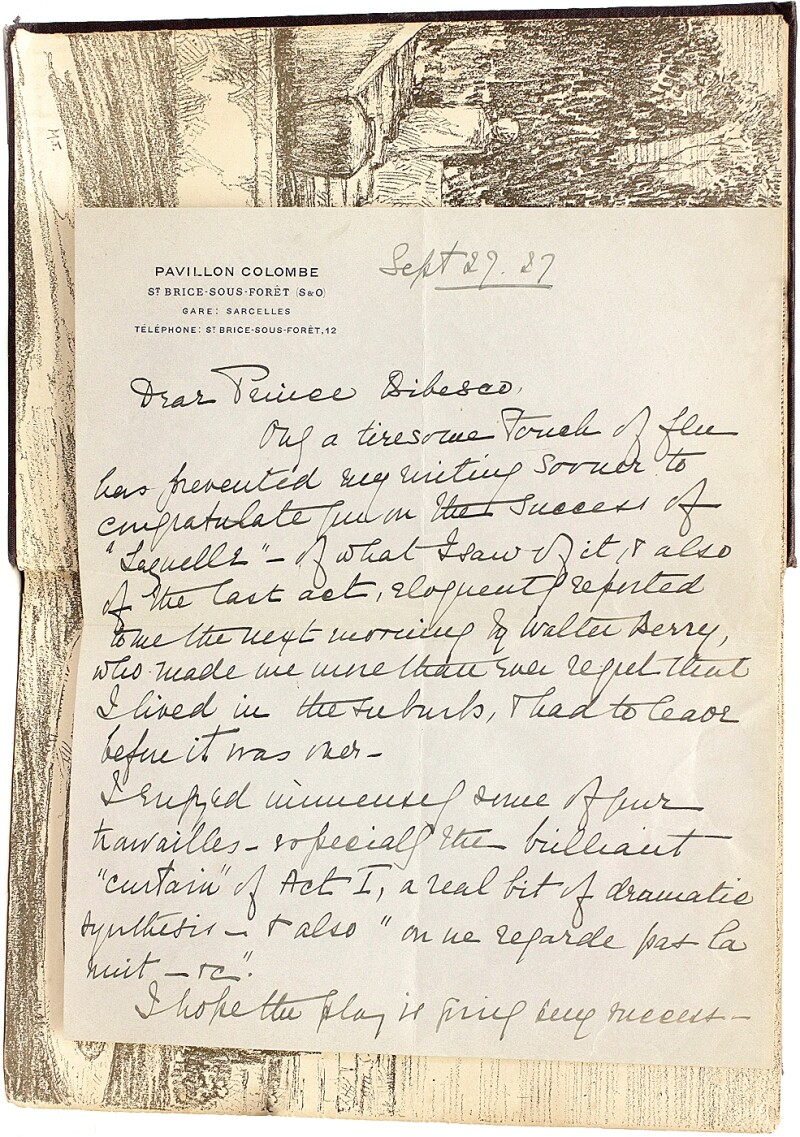 PAVILLON COLOMBE
ST BRICE-SOUS-FORÊT (S&O)
GARE: SARCELLES
TÉLÉPHONE: ST BRICE-SOUS-FORÊT, 12
Sept 29. 27
Dear Prince Bibesco,
Only a tiresome touch of flu
has prevented my writing sooner to
congratulate you on the success of
"Laquelle" — of what I saw of it, & also
of the last act, eloquently reported
to me the next morning by Walter Berry,
who made me more than ever regret that
I lived in the suburbs, & had to leave
before it was over —
I enjoyed immensely some of your
trouvailles — especially the brilliant
"curtain" of Act I, a real bit of dramatic
synthesis — & also "on ne regarde pas la
nuit — &c".
I hope the play is success —